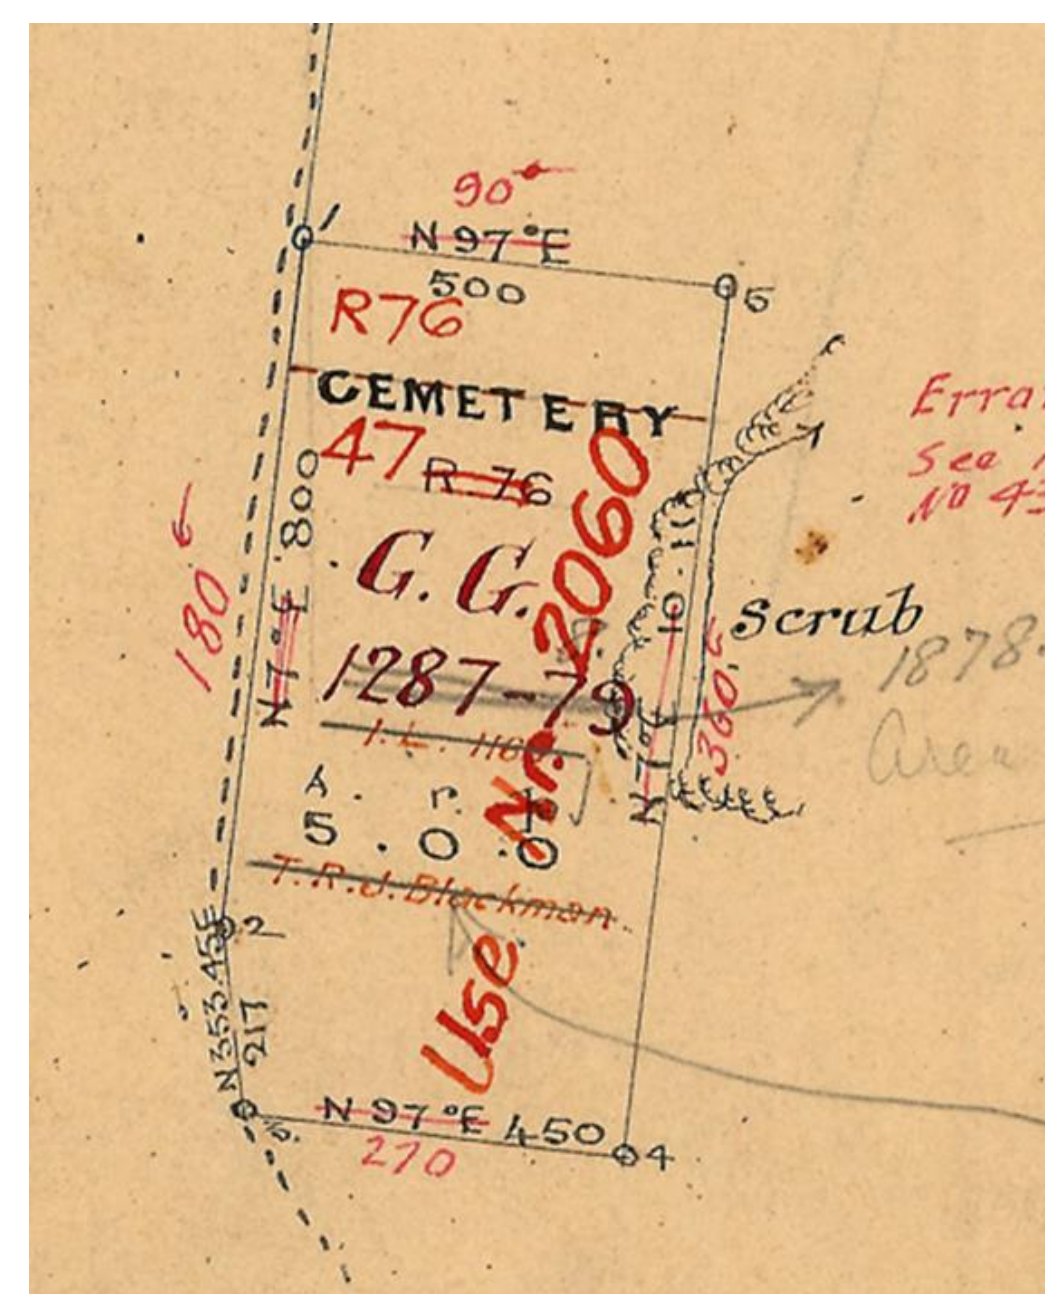 90
N 97° E
500
1
5
R76
CEMETERY
47 R. 76
G. G.
1287-79
A. r. p
5. 0. 0
T.R.J. Blackman.
Use Nr. 2060
N 7° E 800
180
N 7° E 10.11
360
Scrub
1878.
Area
Erra
See
No 43
2
N353.45E
217
N 97° E 450
270
4